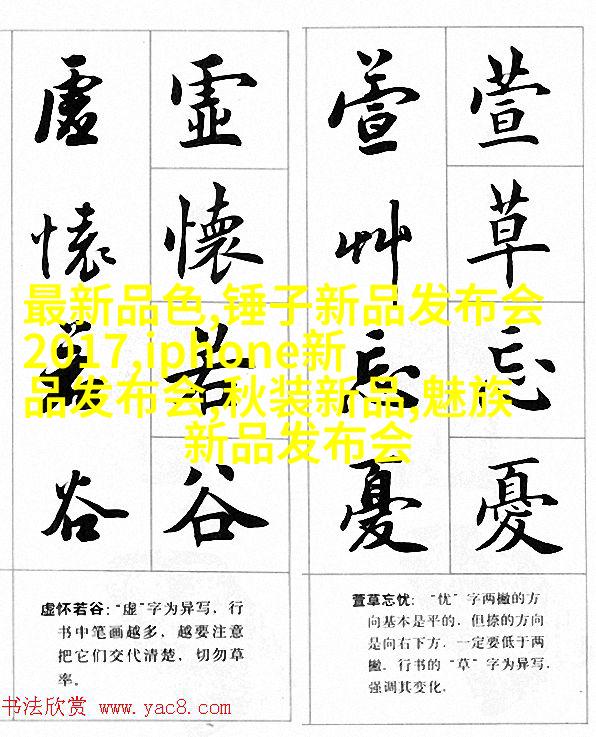 虚懷若谷
虚懷若谷
萱艸忘憂
萱草忘憂
最新品色,锤子新品发布会
2017,iphone新
品发布会,秋装新品,魅族
新品发布会
虚怀若谷：“虚”字为异写，行
书中笔画越多，越要注意
把它们交代清楚，切勿草
率。
萱草忘忧：“忧”字两撇的方
向基本是平的，但捺的方向
是向右下方，一定要低于两
撇。行书的“草”字为异写，
强调其变化。
书法欣赏 www.yac8.com